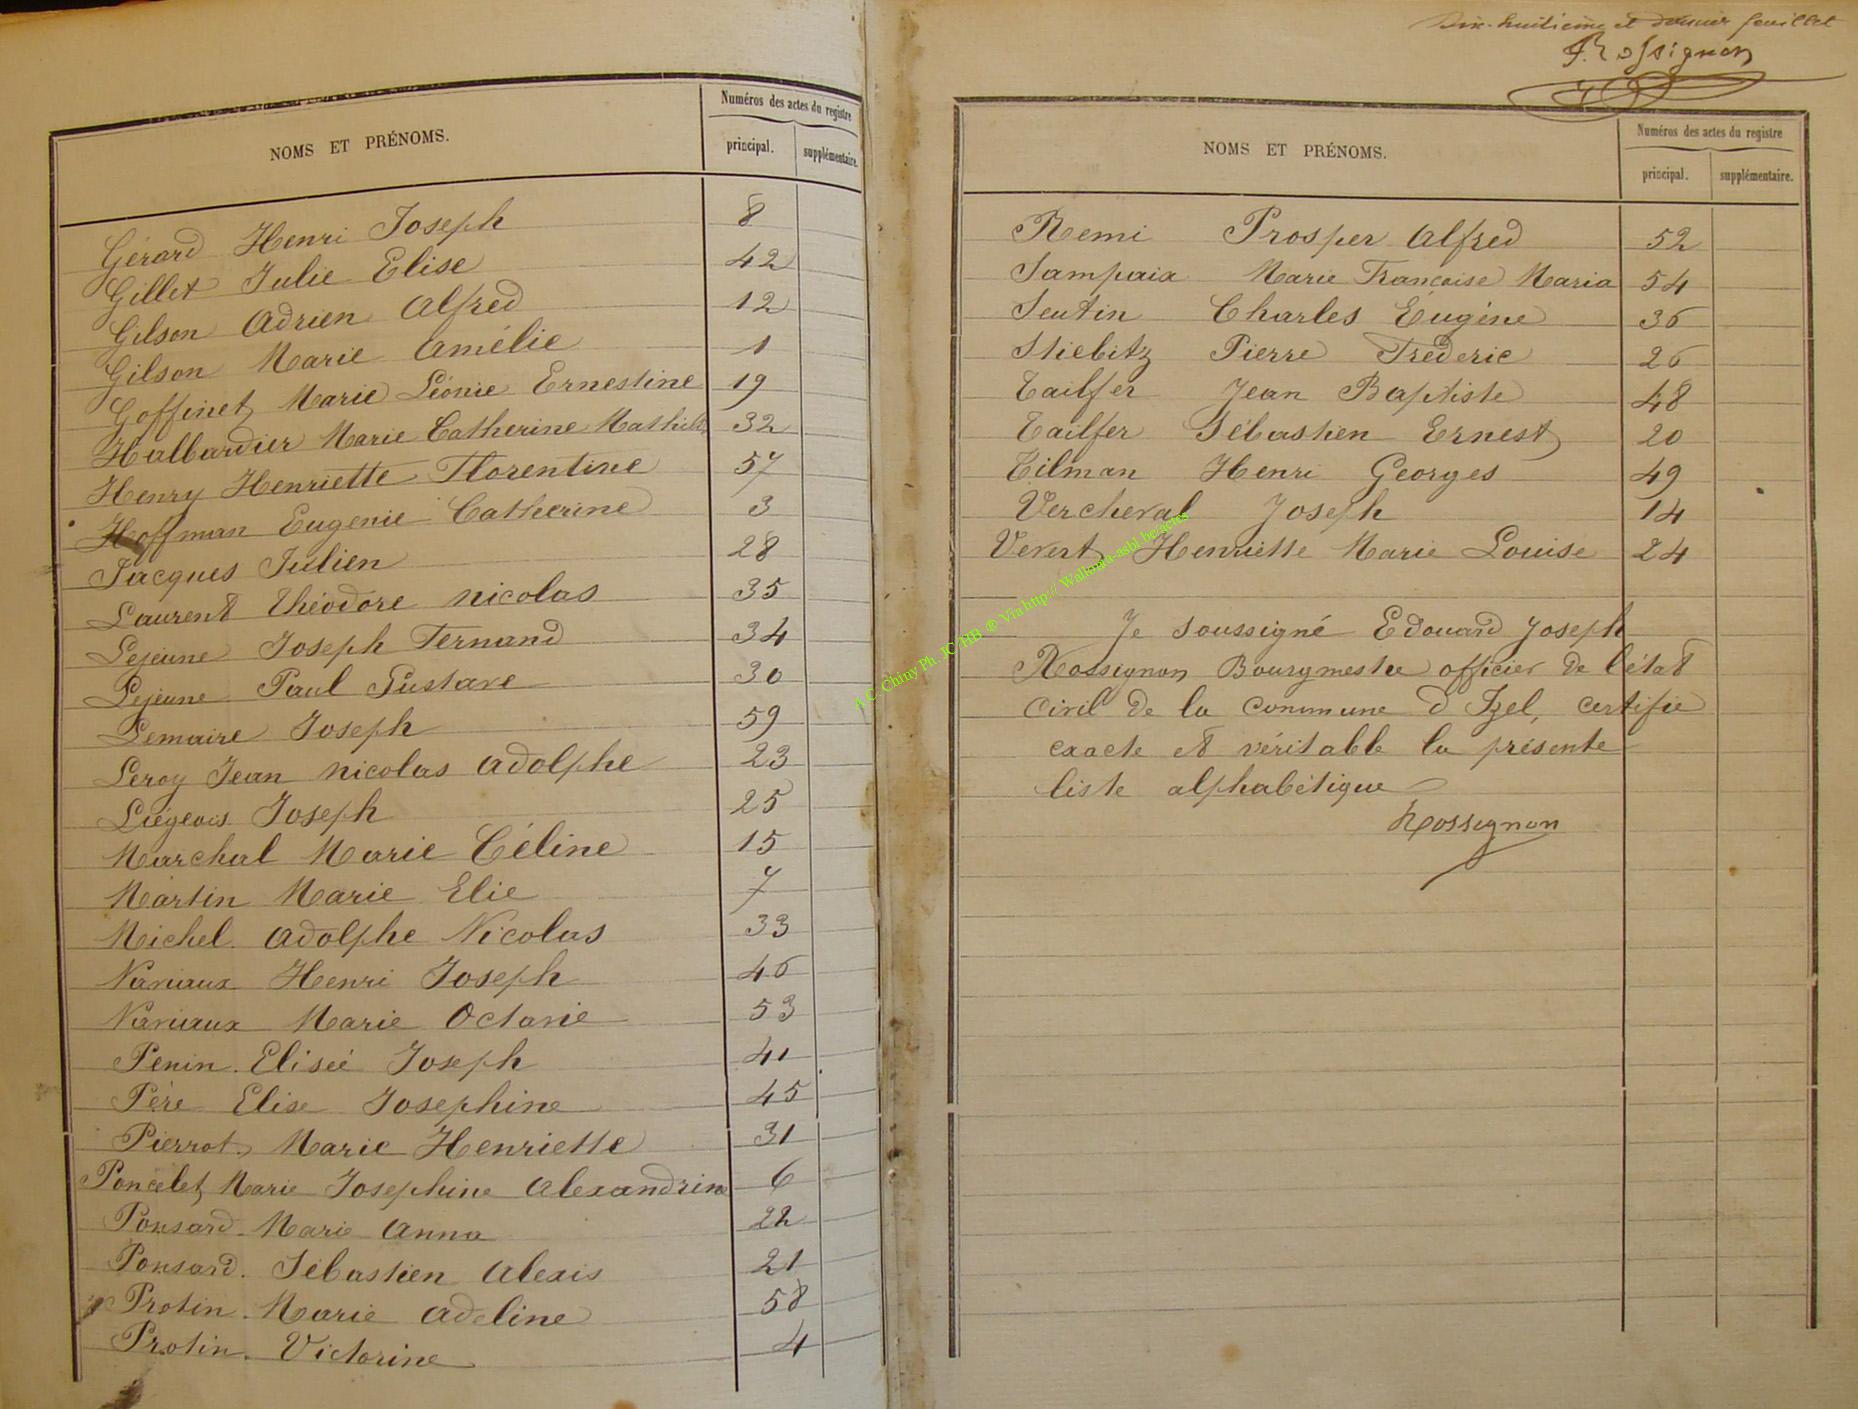 NOMS ET PRÉNOMS.
Numéros des actes du registre
principal.
supplémentaire.
Gérard Henri Joseph 8
Gillet Julie Elise 42
Gilson Adrien Alfred 12
Gilson Marie Amélie 1
Goffinet Marie Léonie Ernestine 19
Halbardier Marie Catherine Mathilde 32
Henry Henriette Florentine 57
Hoffman Eugenie Catherine 3
Jacques Julien 28
Laurent Théodore Nicolas 35
Lejeune Joseph Fernand 34
Lejeune Paul Gustave 30
Lemaire Joseph 59
Leroy Jean Nicolas Adolphe 23
Liégeois Joseph 25
Marchal Marie Céline 15
Martin Marie Elie 7
Michel Adolphe Nicolas 33
Naviaux Henri Joseph 46
Naviaux Marie Octavie 53
Penin Elisée Joseph 41
Père Elise Josephine 45
Pierrot Marie Henriette 31
Poncelet Marie Josephine Alexandrine 6
Ponsard Marie Anna 22
Ponsard Sébastien Alexis 21
Protin Marie Adeline 58
Protin Victorine 4
Dix-huitième et dernier feuillet
Rossignon
NOMS ET PRÉNOMS.
Numéros des actes du registre
principal.
supplémentaire.
Remi Prosper Alfred 52
Sampaix Marie Francoise Maria 54
Seutin Charles Eugène 36
Stiebitz Pierre Fréderic 26
Tailfer Jean Baptiste 48
Tailfer Sébastien Ernest 20
Tilman Henri Georges 49
Vercheval Joseph 14
Henriette Marie Louise 24
Je soussigné Edouard Joseph
Rossignon Bourgmestre officier de l'état
civil de la commune d Izel, certifie
exacte et véritable la présente
liste alphabétique
Rossignon
A.C. Chiny Ph. JC HB @ Via http:// Wallonia-asbl.be/actes